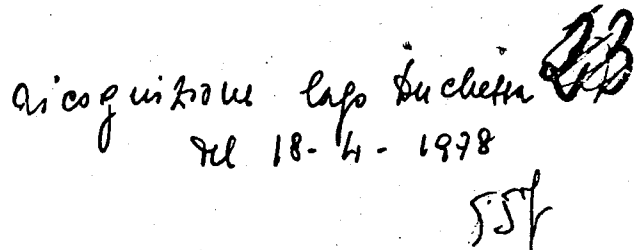 ricognizione lago Duchessa 23
del 18-4-1978